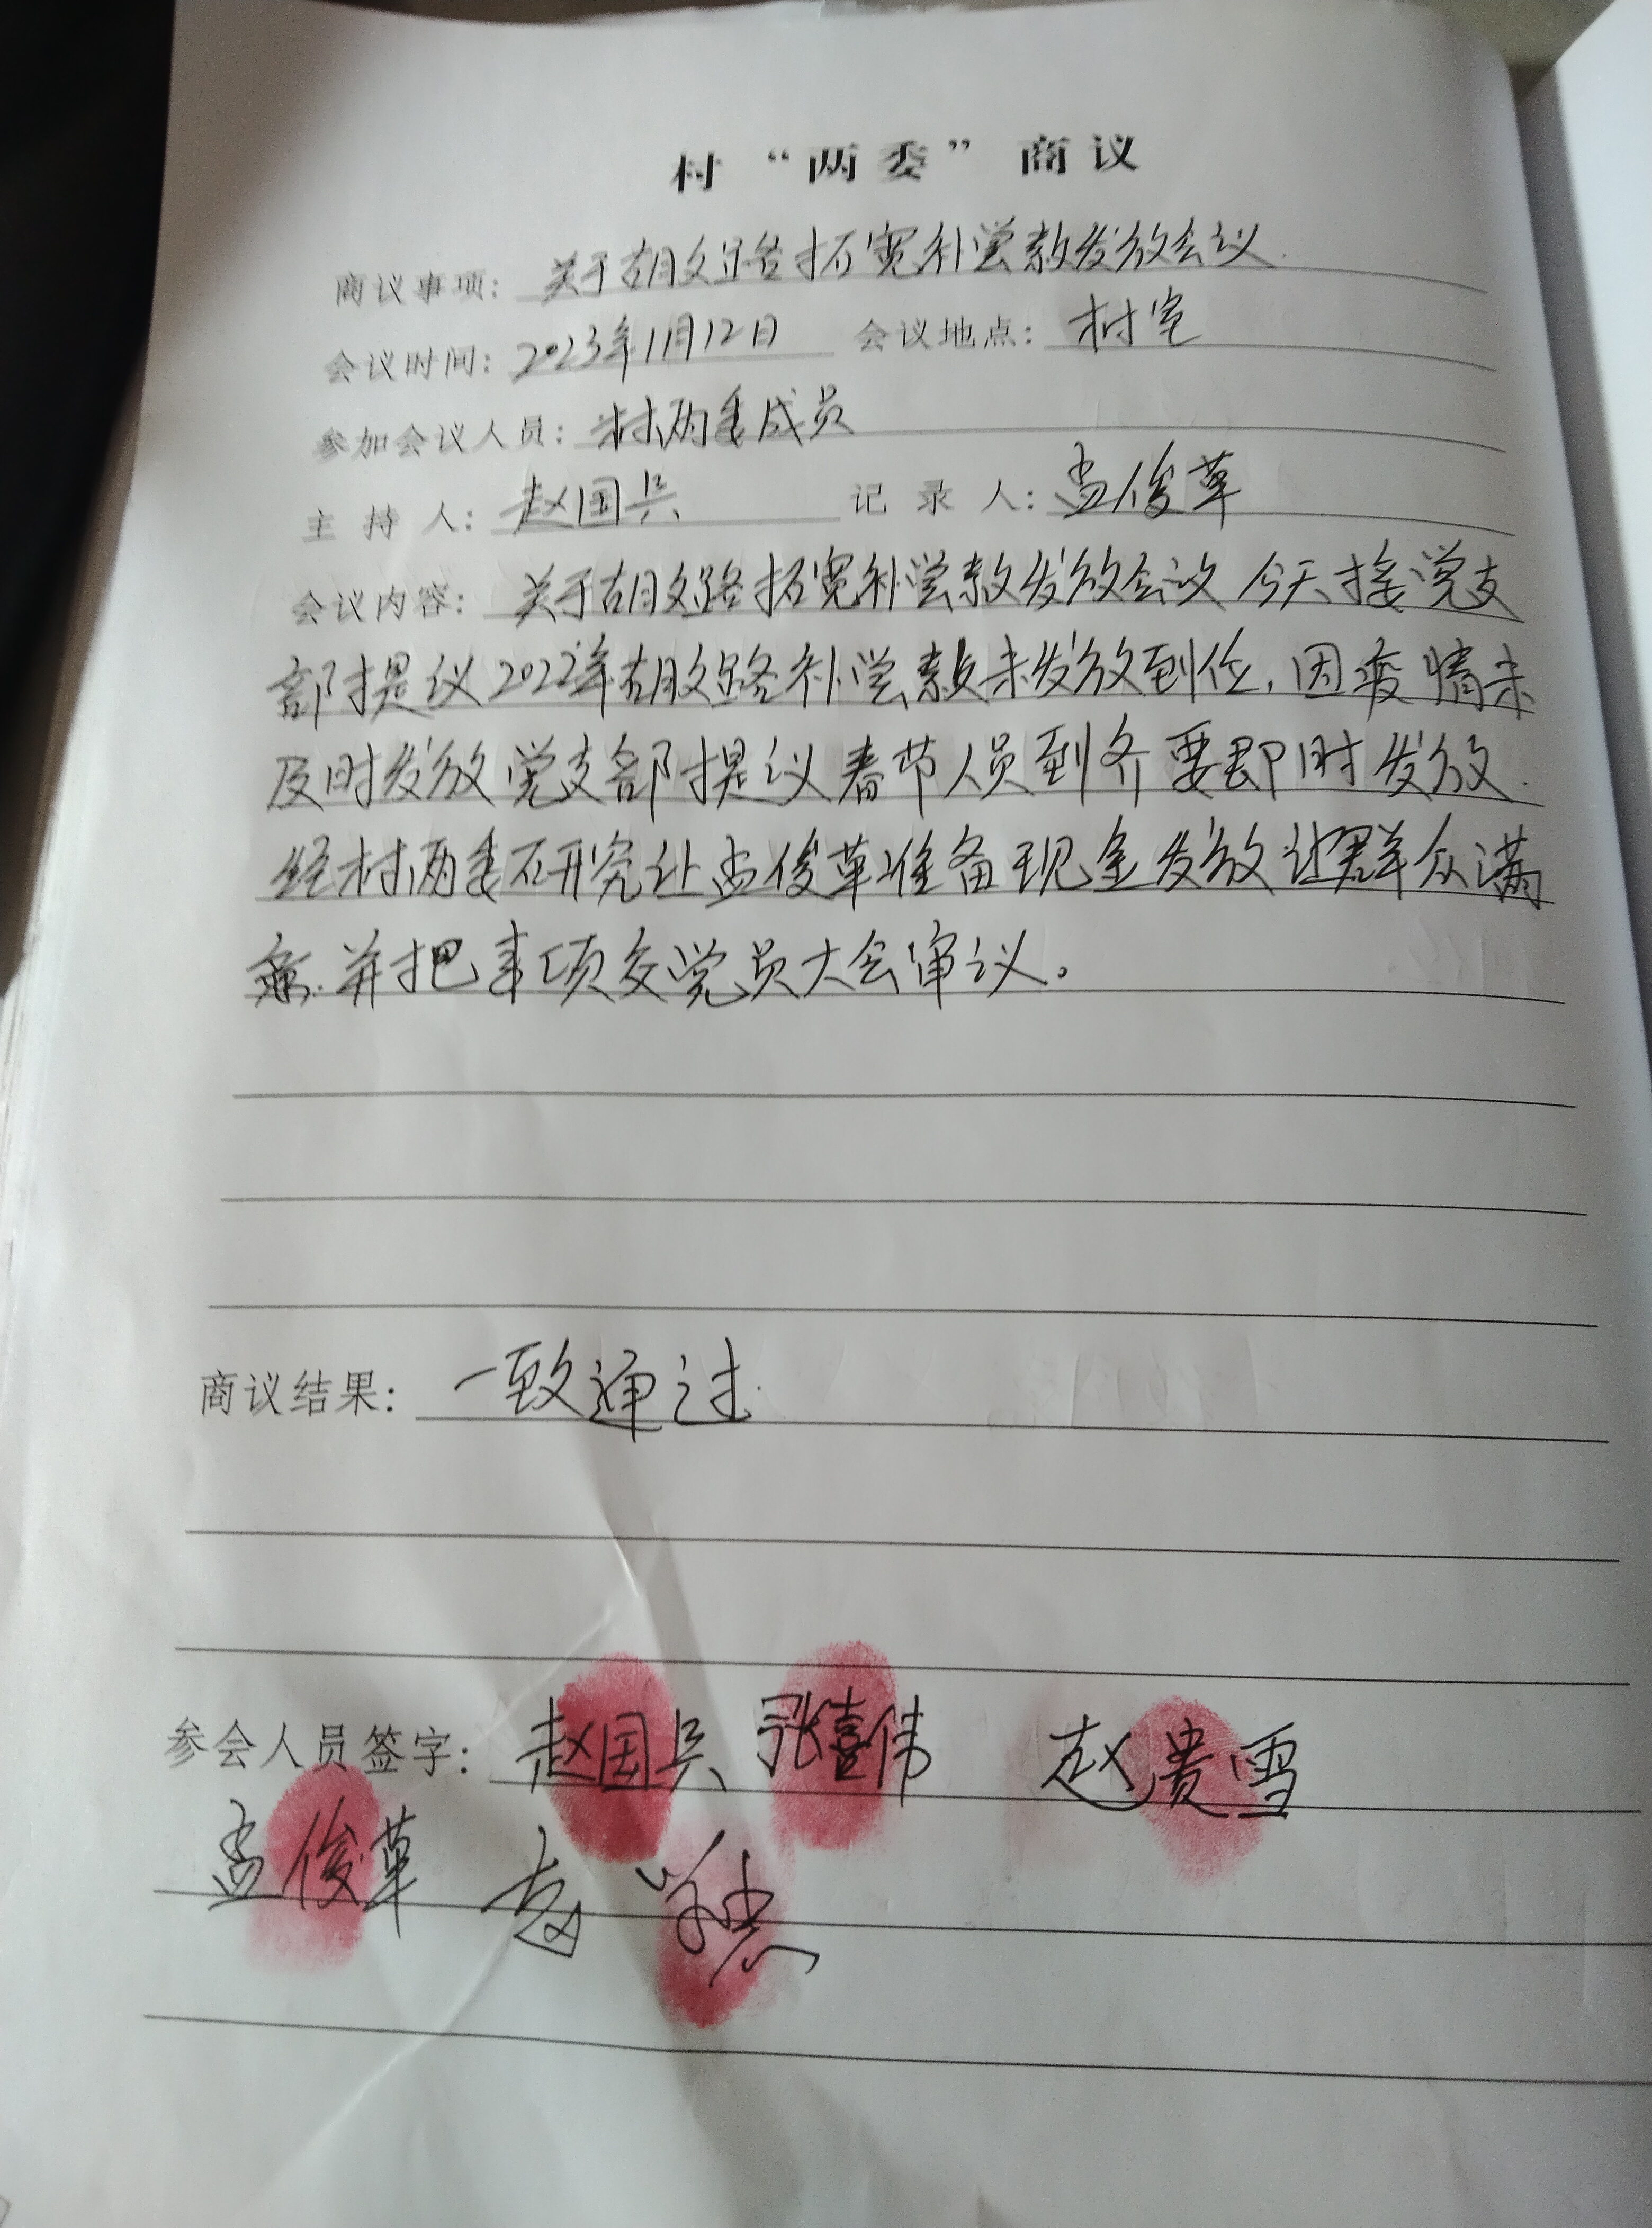 村“两委”商议
商议事项：关于胡文路拓宽补偿款发放会议.
会议时间：2023年11月12日 会议地点：村室
参加会议人员：村两委成员
主持人：赵国兵 记录人：孟俊草
会议内容：关于胡文路拓宽补偿款发放会议 今天接党支
部提议2022年胡文路补偿款未发放到位，因疫情未
及时发放党支部提议春节人员到齐要即时发放.
经村两委研究让孟俊草准备现金发放让群众满
意.并把事项交党员大会审议。
商议结果：一致通过.
参会人员签字：赵国兵 张喜伟 赵贵雪
孟俊草